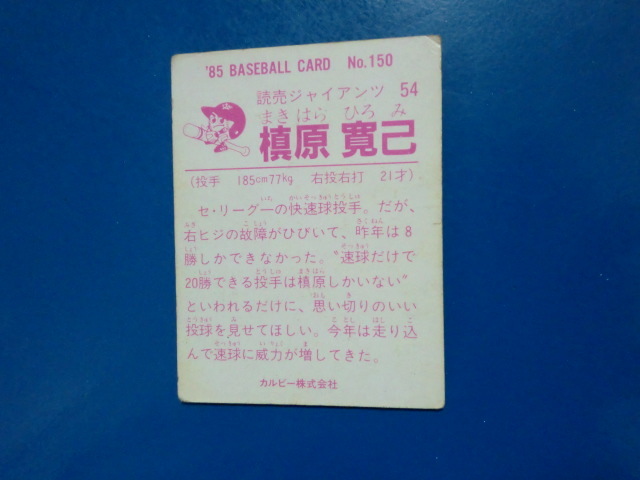 '85 BASEBALL CARD No.150
読売ジャイアンツ 54
まき はら ひろ み
槙原 寛己
(投手 185cm77kg 右投右打 21才)
セ・リーグ一の快速球投手。だが、
右ヒジの故障がひびいて、昨年は8
勝しかできなかった。"速球だけで
20勝できる投手は槙原しかいない"
といわれるだけに、思い切りのいい
投球を見せてほしい。今年は走り込
んで速球に威力が増してきた。
カルビー株式会社